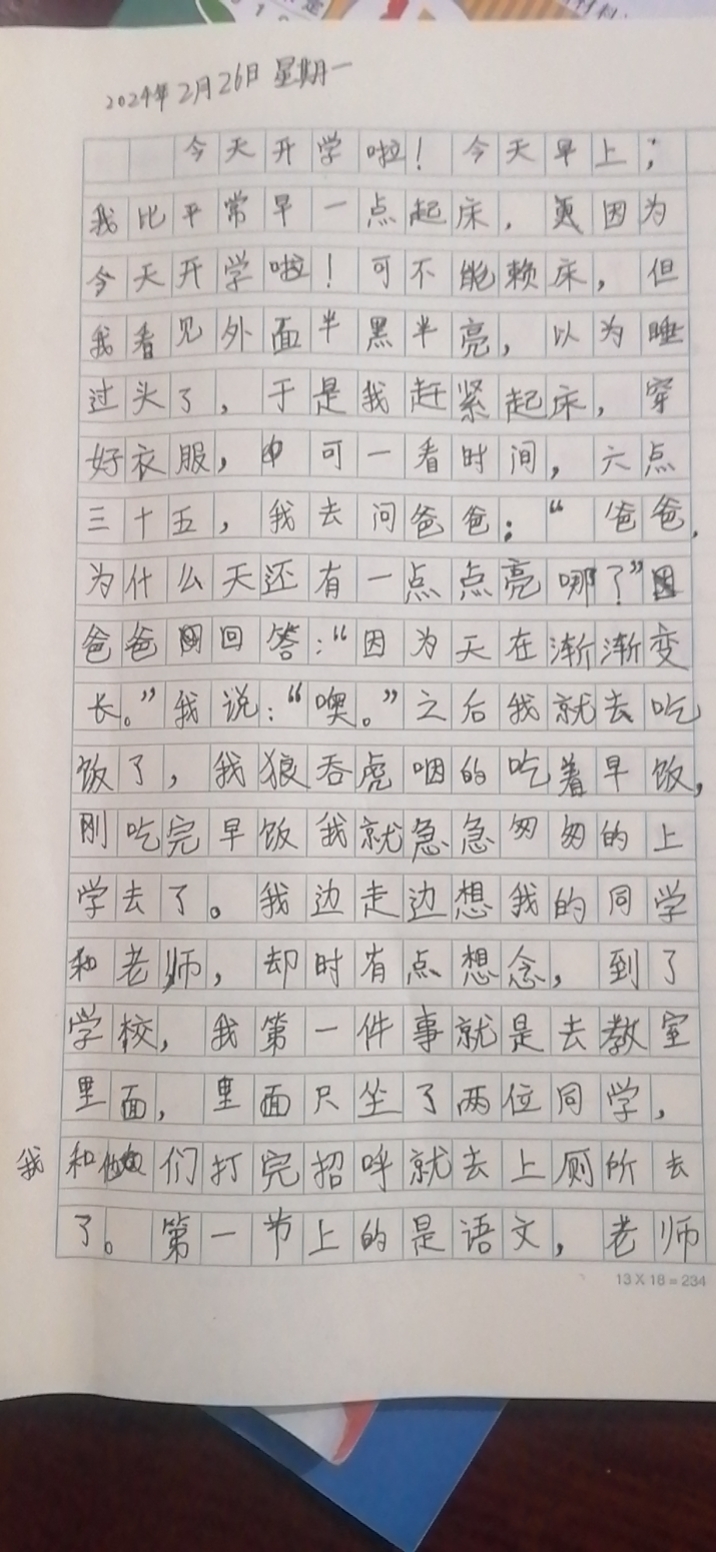 2024年2月26日 星期一
今天开学啦！今天早上；
我比平常早一点起床，更因为
今天开学啦！可不能赖床，但
我看见外面半黑半亮，以为睡
过头了，于是我赶紧起床，穿
好衣服，可一看时间，六点
三十五，我去问爸爸：“爸爸，
为什么天还有一点点亮哪？”
爸爸回答：“因为天在渐渐变
长。”我说：“噢。”之后我就去吃
饭了，我狼吞虎咽的吃着早饭，
刚吃完早饭我就急急匆匆的上
学去了。我边走边想我的同学
和老师，却时有点想念，到了
学校，我第一件事就是去教室
里面，里面只坐了两位同学，
我和她们打完招呼就去上厕所去
了。第一节上的是语文，老师
13 X 18 = 234